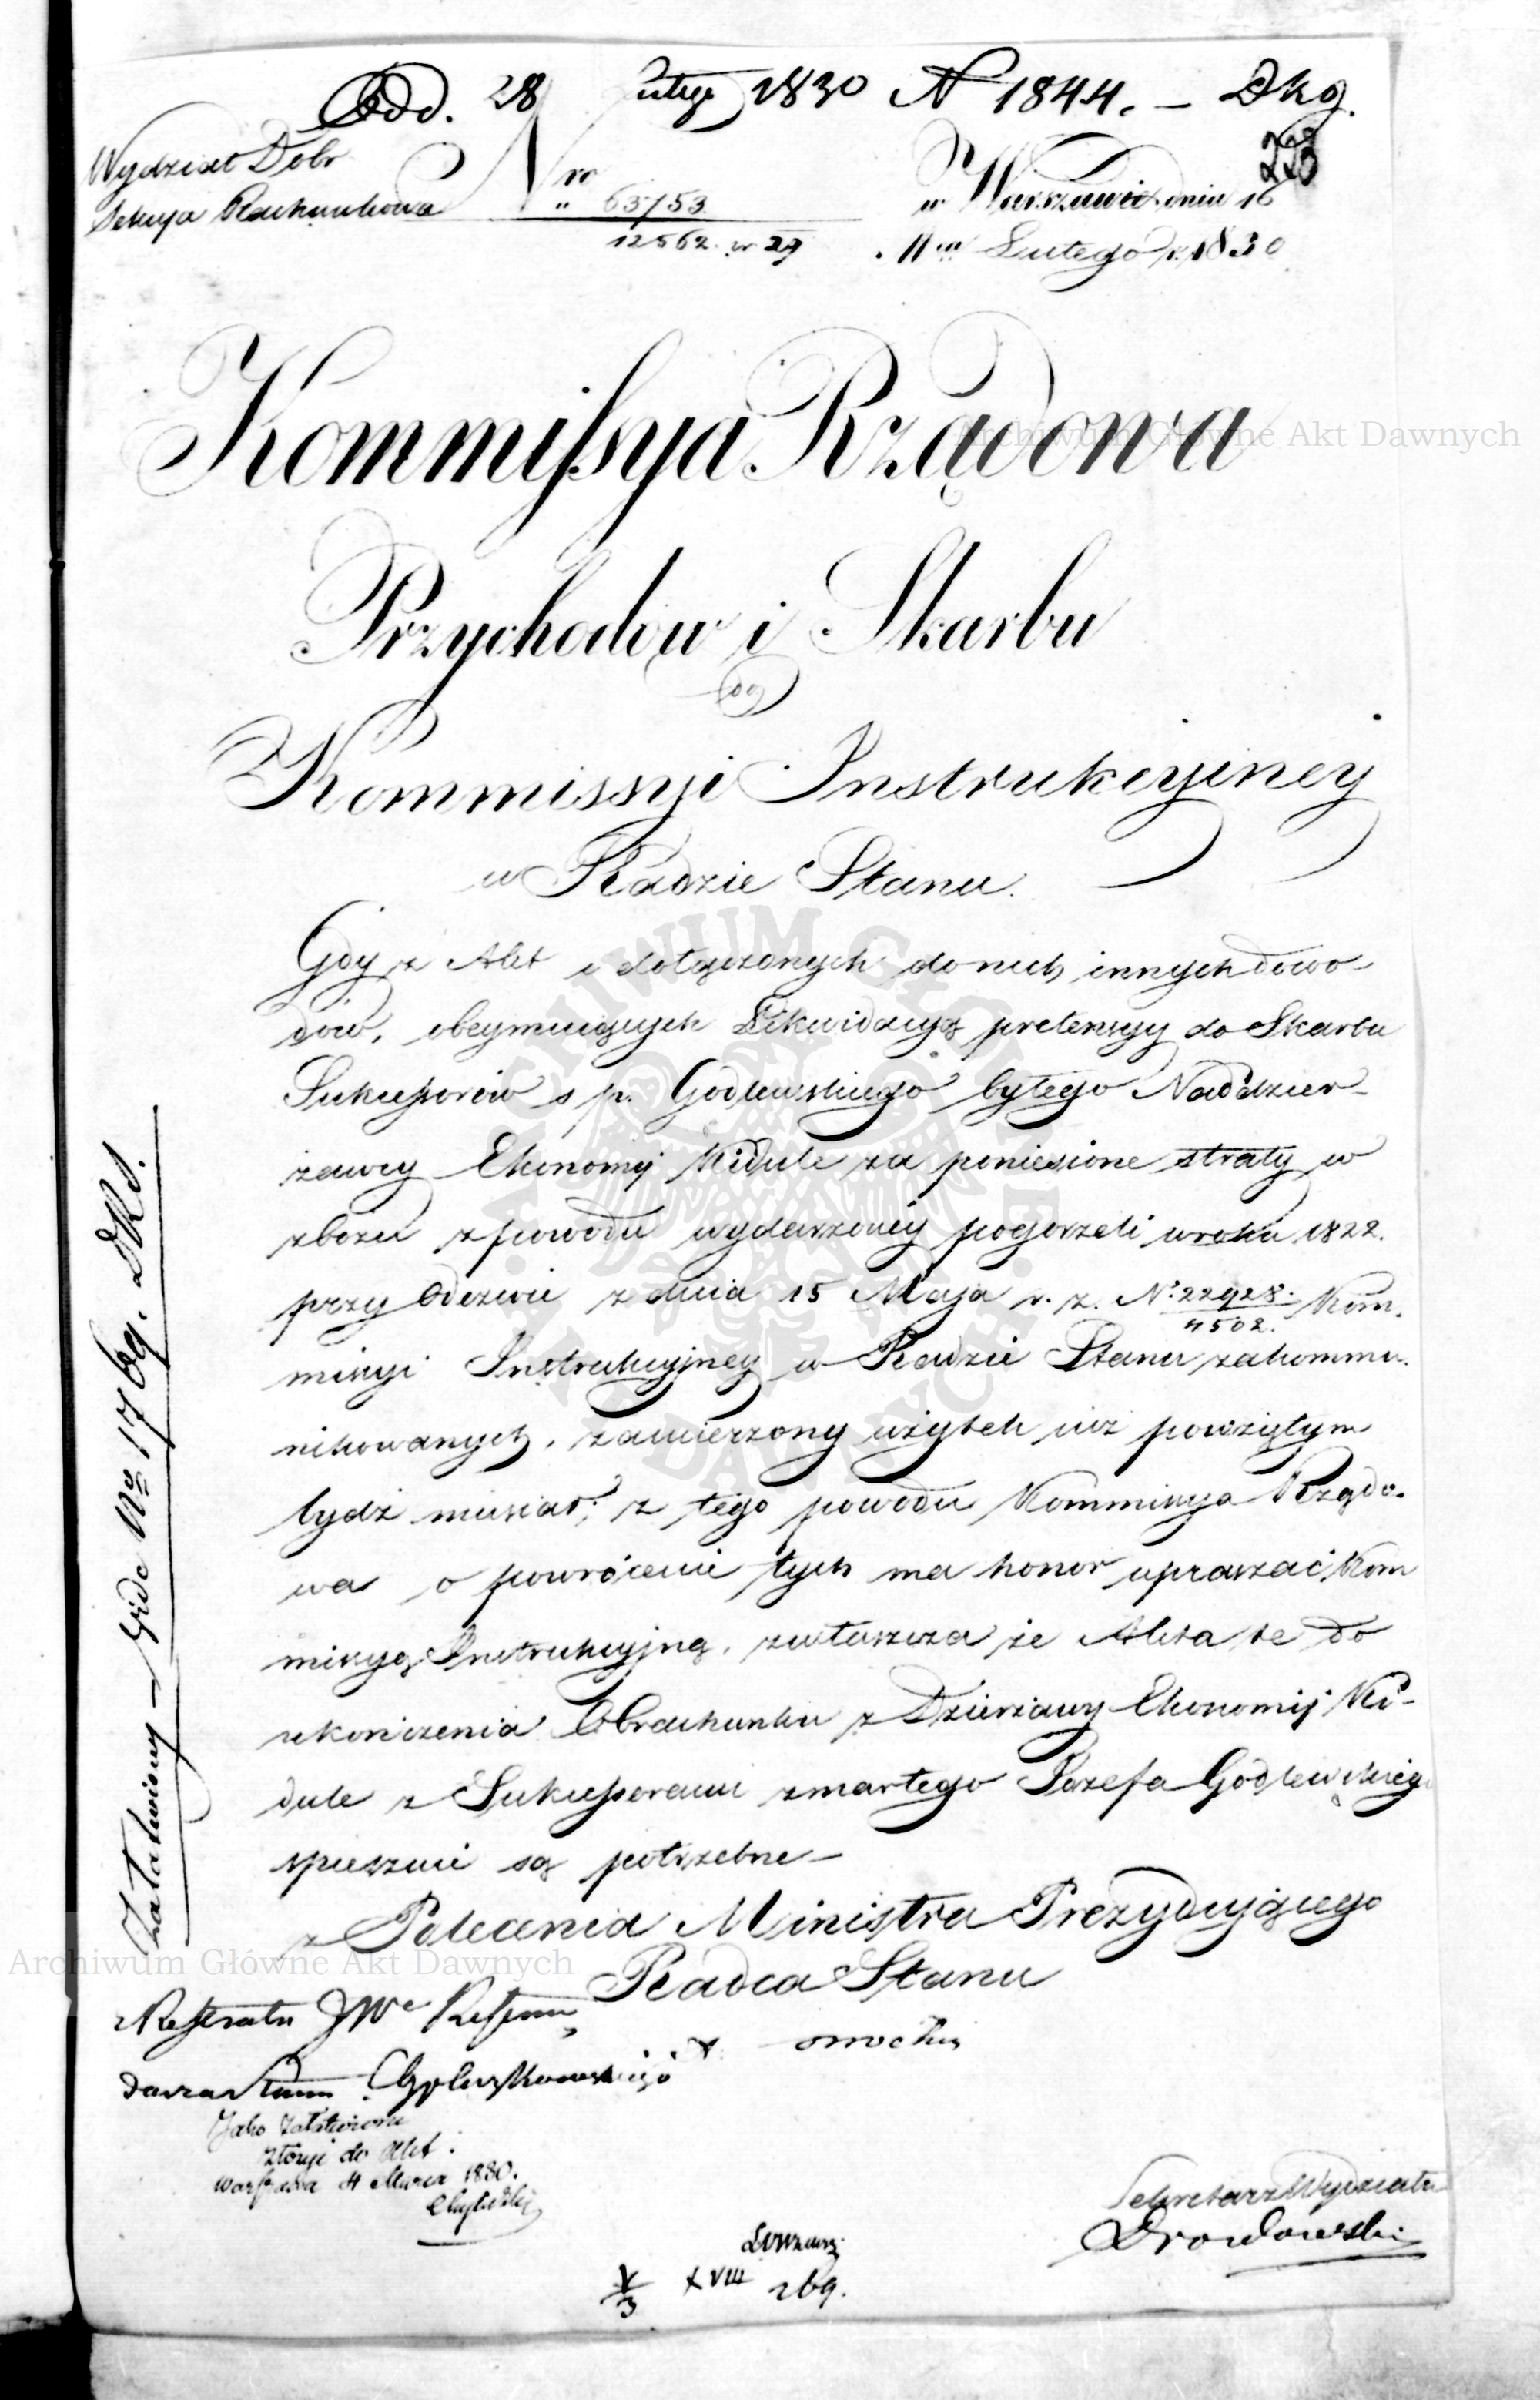 Odd. 28 Lutego 1830 N 1844. – Dkg.
28
Wydział Dobr
Sekcya Rachunkowa
Nro 63753
12562. w 29
w Warszawie dnia 16
Mca Lutego r. 1830
Kommissya Rządowa
Przychodów i Skarbu
do
Kommissyi Instrukcyiney
w Radzie Stanu.
Gdy z Akt i dołączonych do nich innych dowo-
dów, obeymuiących Likwidacyą pretensyy do Skarbu
Sukcessorów s p. Godlewskiego byłego Naddzier-
zawcy Ekonomij Kidule za poniesione straty w
zbożu z powodu wydarzoney pogorzeli w roku 1822.
przy Odezwie z dnia 15 Maja r. z. No 22928./4502. Kom-
missyi Instrukcyjney w Radzie Stanu zakommu-
nikowanych, zamierzony użytek już powziętym
bydź musiał; z tego powodu Kommissya Rządo-
wa o powrócenie tych ma honor upraszać Kom
missyą Instrukcyjną, zwłaszcza że Akta te do
ukończenia Obrachunku z Dzierżawy Ekonomij Ki-
dule z Sukcessorami zmarłego Józefa Godlewskiego
spiesznie są potrzebne –
z Polecenia Ministra Prezyduiącego
Radca Stanu
Załatwiony – Vide No 1769. DKS.
Jako załatwione
złożyć do Akt.
Warszawa 4 Marca 1830.
Sekretarz Wydziału
Drowdowski
XVIII 269.
V/3
Archiwum Główne Akt Dawnych
Archiwum Główne Akt Dawnych
ARCHIWUM GŁÓWNE AKT DAWNYCH